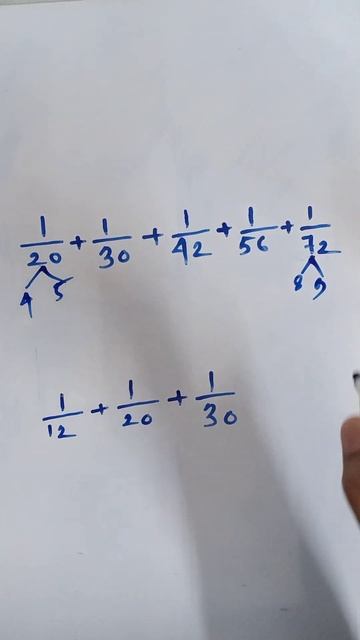 1/20 + 1/30 + 1/42 + 1/56 + 1/72
4 5 8 9
1/12 + 1/20 + 1/30